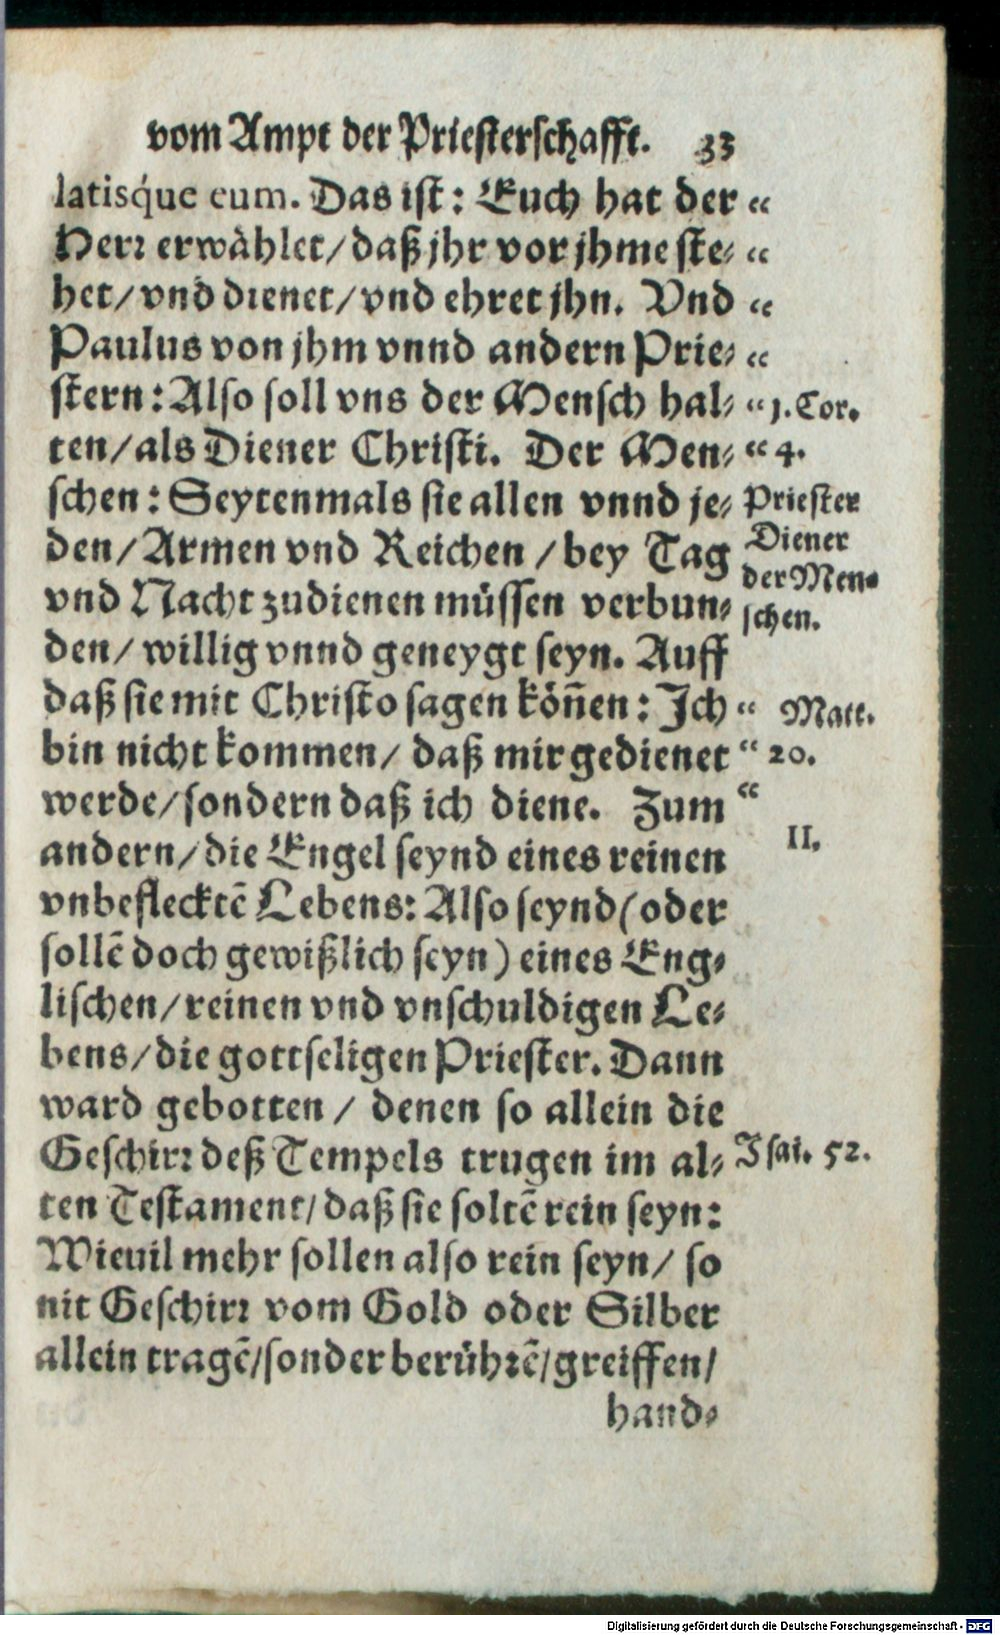 vom Ampt der Priesterschafft. 33
latisq́ue eum. Das ist: Euch hat der “
Herꝛ erwählet/ daß jhr vor jhme ste- “
het/ vnd dienet/ vnd ehret jhn. Vnd “
Paulus von jhm vnnd andern Prie- “
stern: Also soll vns der Mensch hal- “ 1. Cor.
ten/ als Diener Christi. Der Men- “ 4.
schen: Seytenmals sie allen vnnd je- Priester
den/ Armen vnd Reichen / bey Tag Diener
vnd Nacht zudienen müssen verbun- der Men-
den/ willig vnnd geneygt seyn. Auff schen.
daß sie mit Christo sagen köñen: Ich “ Matt.
bin nicht kommen/ daß mir gedienet “ 20.
werde/ sondern daß ich diene. Zum “
andern/ die Engel seynd eines reinen II.
vnbeflecktẽ Lebens: Also seynd (oder
sollẽ doch gewißlich seyn) eines Eng-
lischen/ reinen vnd vnschuldigen Le-
bens/ die gottseligen Priester. Dann
ward gebotten / denen so allein die
Geschirꝛ deß Tempels trugen im al- Isai. 52.
ten Testament/ daß sie soltẽ rein seyn:
Wieuil mehr sollen also rein seyn/ so
nit Geschirꝛ vom Gold oder Silber
allein tragẽ/ sonder berühꝛẽ/ greiffen/
hand-
Digitalisierung gefördert durch die Deutsche Forschungsgemeinschaft - DFG